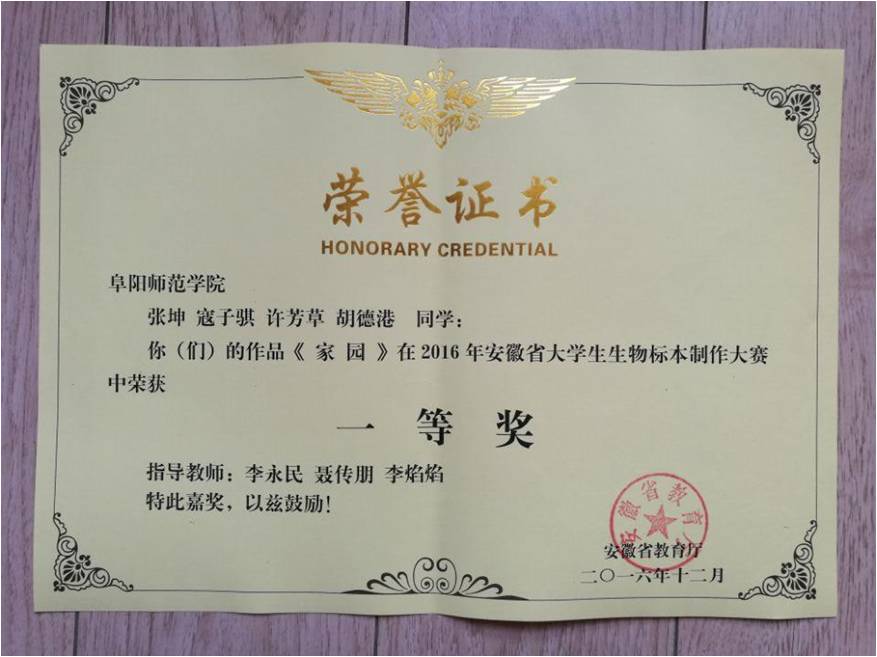 荣誉证书
HONORARY CREDENTIAL
阜阳师范学院
张坤 寇子骐 许芳草 胡德港 同学：
你（们）的作品《 家 园 》在2016年安徽省大学生生物标本制作大赛
中荣获
一 等 奖
指导教师：李永民 聂传朋 李焰焰
特此嘉奖，以兹鼓励！
安徽省教育厅
安徽省教育厅
二〇一六年十二月